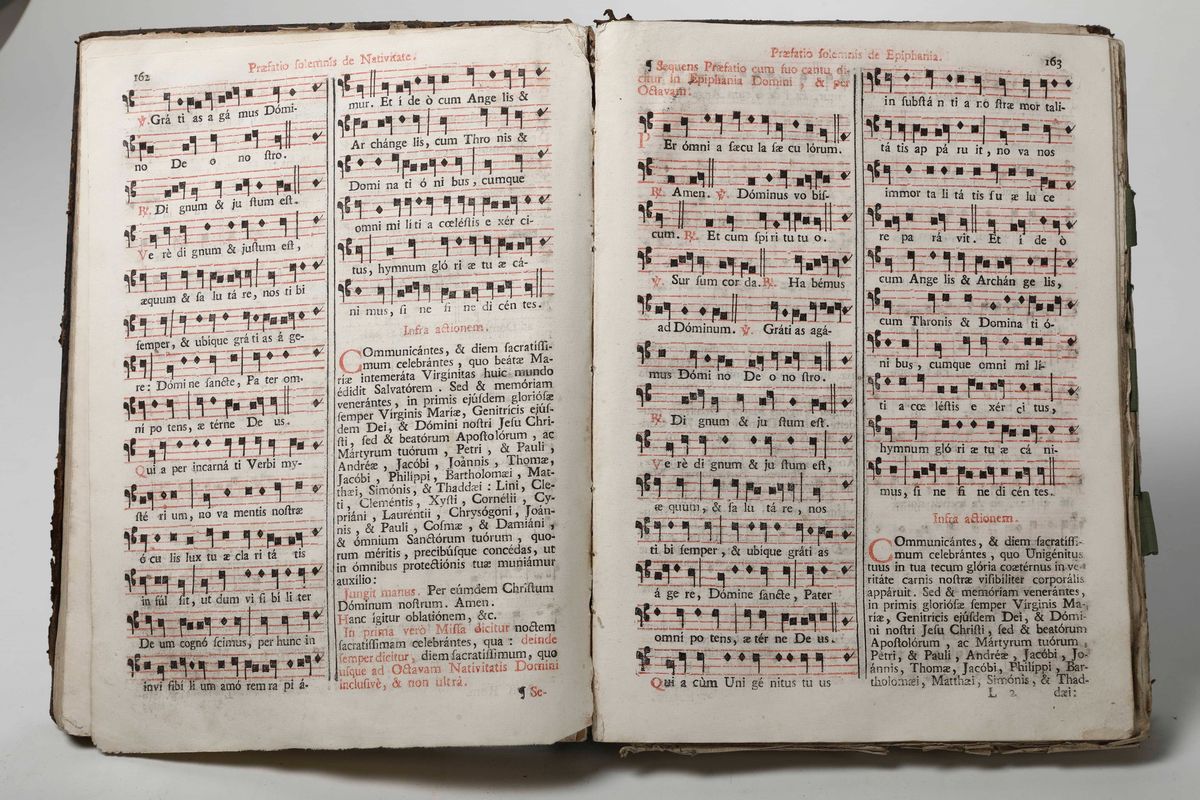 162
Præfatio solemnis de Nativitate.
℣. Grá ti as a gá mus Dómi-
no De o no stro.
℟. Di gnum & ju stum est.
Ve rè di gnum & justum est,
æquum & sa lu tá re, nos ti bi
semper, & ubique grá ti as á ge-
re: Dómi ne sancte, Pa ter om.
ni po tens, æ térne De us.
Qui a per incarná ti Verbi my-
sté ri um, no va mentis nostræ
ó cu lis lux tu æ cla ri tá tis
in fúl sit, ut dum vi si bi li ter
De um cognó scimus, per hunc in
invi sibi li um amó rem ra pi á-
mur. Et í de ò cum Ange lis &
Ar chánge lis, cum Thro nis &
Domi na ti ó ni bus, cumque
omni mi li ti a cœléstis e xér ci-
tus, hymnum gló ri æ tu æ cá-
ni mus, si ne si ne di cén tes.
Infra actionem.
COmmunicántes, & diem sacratissi-
mum celebrántes, quo beátæ Ma-
riæ intemeráta Virginitas huic mundo
édidit Salvatórem. Sed & memóriam
venerántes, in primis ejúsdem gloriósæ
semper Virginis Mariæ, Genitricis ejús-
dem Dei, & Dómini nostri Jesu Chri-
sti, sed & beatórum Apostolórum, ac
Mártyrum tuórum, Petri, & Pauli,
Andréæ, Jacóbi, Joánnis, Thomæ,
Jacóbi, Philippi, Bartholomæi, Mat-
thæi, Simónis, & Thaddæi: Lini, Cle-
ti, Cleméntis, Xysti, Cornélii, Cy-
priáni, Lauréntii, Chrysógoni, Joán-
nis, & Pauli, Cosmæ, & Damiáni,
& ómnium Sanctórum tuórum, quo-
rum méritis, precibúsque concédas, ut
in ómnibus protectiónis tuæ muniámur
auxílio:
Jungit manus. Per eúmdem Christum
Dóminum nostrum. Amen.
Hanc igitur oblatiónem, &c.
In prima verò Missa dicitur noctem
sacratissimam celebrántes, qua: deinde
semper dicitur, diem sacratissimum, quo
usque ad Octavam Nativitatis Domini
inclusivè, & non ultrà.
¶ Se-
Præfatio solemnis de Epiphania.
163
¶ Sequens Præfatio cum suo cantu, di-
citur in Epiphania Domini, & per
Octavam.
PEr ómni a sæcu la sæ cu lórum.
℟. Amen. ℣. Dóminus vo bis-
cum. ℟. Et cum spíri tu tu o.
℣. Sur sum cor da. ℟. Ha bémus
ad Dóminum. ℣. Gráti as agá-
mus Dómi no De o no stro.
℟. Di gnum & ju stum est.
Ve rè di gnum & ju stum est,
æ quum, & sa lu tá re, nos
ti bi semper, & ubique gráti as
á ge re, Dómine sancte, Pater
omni po tens, æ tér ne De us.
Qui a cùm Uni gé nitus tu us
in substá n ti a no stræ mor tali-
tá tis ap pá ru it, no va nos
immor ta li tá tis su æ lu ce
re pa rá vit. Et í de ò
cum Ange lis & Archán ge lis,
cum Thronis & Domina ti ó-
ni bus, cumque omni mi li-
ti a cœ léstis e xér ci tus,
hymnum gló ri æ tu æ cá ni-
mus, si ne si ne di cén tes.
Infra actionem.
COmmunicántes, & diem sacratissi-
mum celebrántes, quo Unigénitus
tuus in tua tecum glória coætérnus in ve-
ritáte carnis nostræ visibiliter corporális
appáruit. Sed & memóriam venerántes,
in primis gloriósæ semper Virginis Ma-
riæ, Genitricis ejúsdem Dei, & Dómi-
ni nostri Jesu Christi, sed & beatórum
Apostolórum, ac Mártyrum tuórum,
Petri, & Pauli, Andréæ, Jacóbi, Jo-
ánnis, Thomæ, Jacóbi, Philippi, Bar-
tholomæi, Matthæi, Simónis, & Thad-
L 2 dæi: